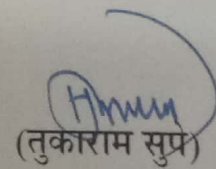 (तुकाराम सुपे)